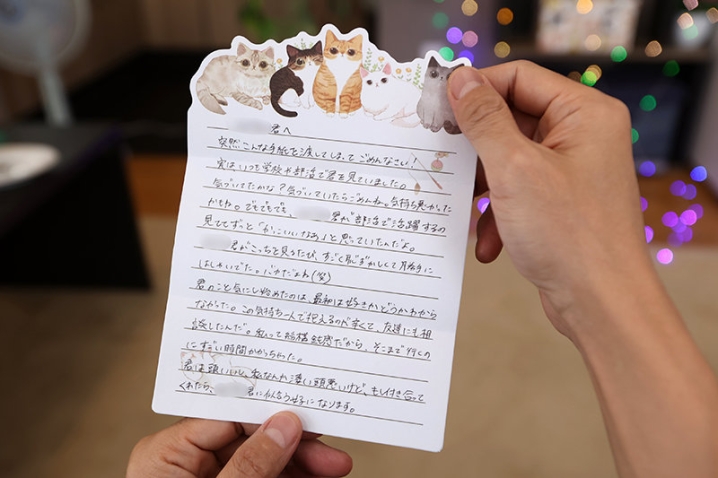 君へ
突然こんな手紙を渡してしまってごめんなさい!
実は、いつも学校や部活で君を見ていました。
気づいてたかな?気づいていたらごめんね。気持ち悪かった
かもね。でもでもでも、君が部活で活躍するの
見ててずっと「かっこいいなあ」と思っていたんだよ。
君がこっちを見るたび、すごく恥ずかしくて勝手に
はしゃいでた。バカだよね(笑)
君のこと気にし始めたのは、最初は好きかどうかわから
なかった。この気持ち一人で抱えるのが辛くて、友達にも相
談したんだ。私って結構鈍感だから、そこまで行くの
にすごい時間かかっちゃった。
君は頭いいし、私なんか凄い頭悪いけど、もし付き合って
くれたら、君に似合う女子になります。